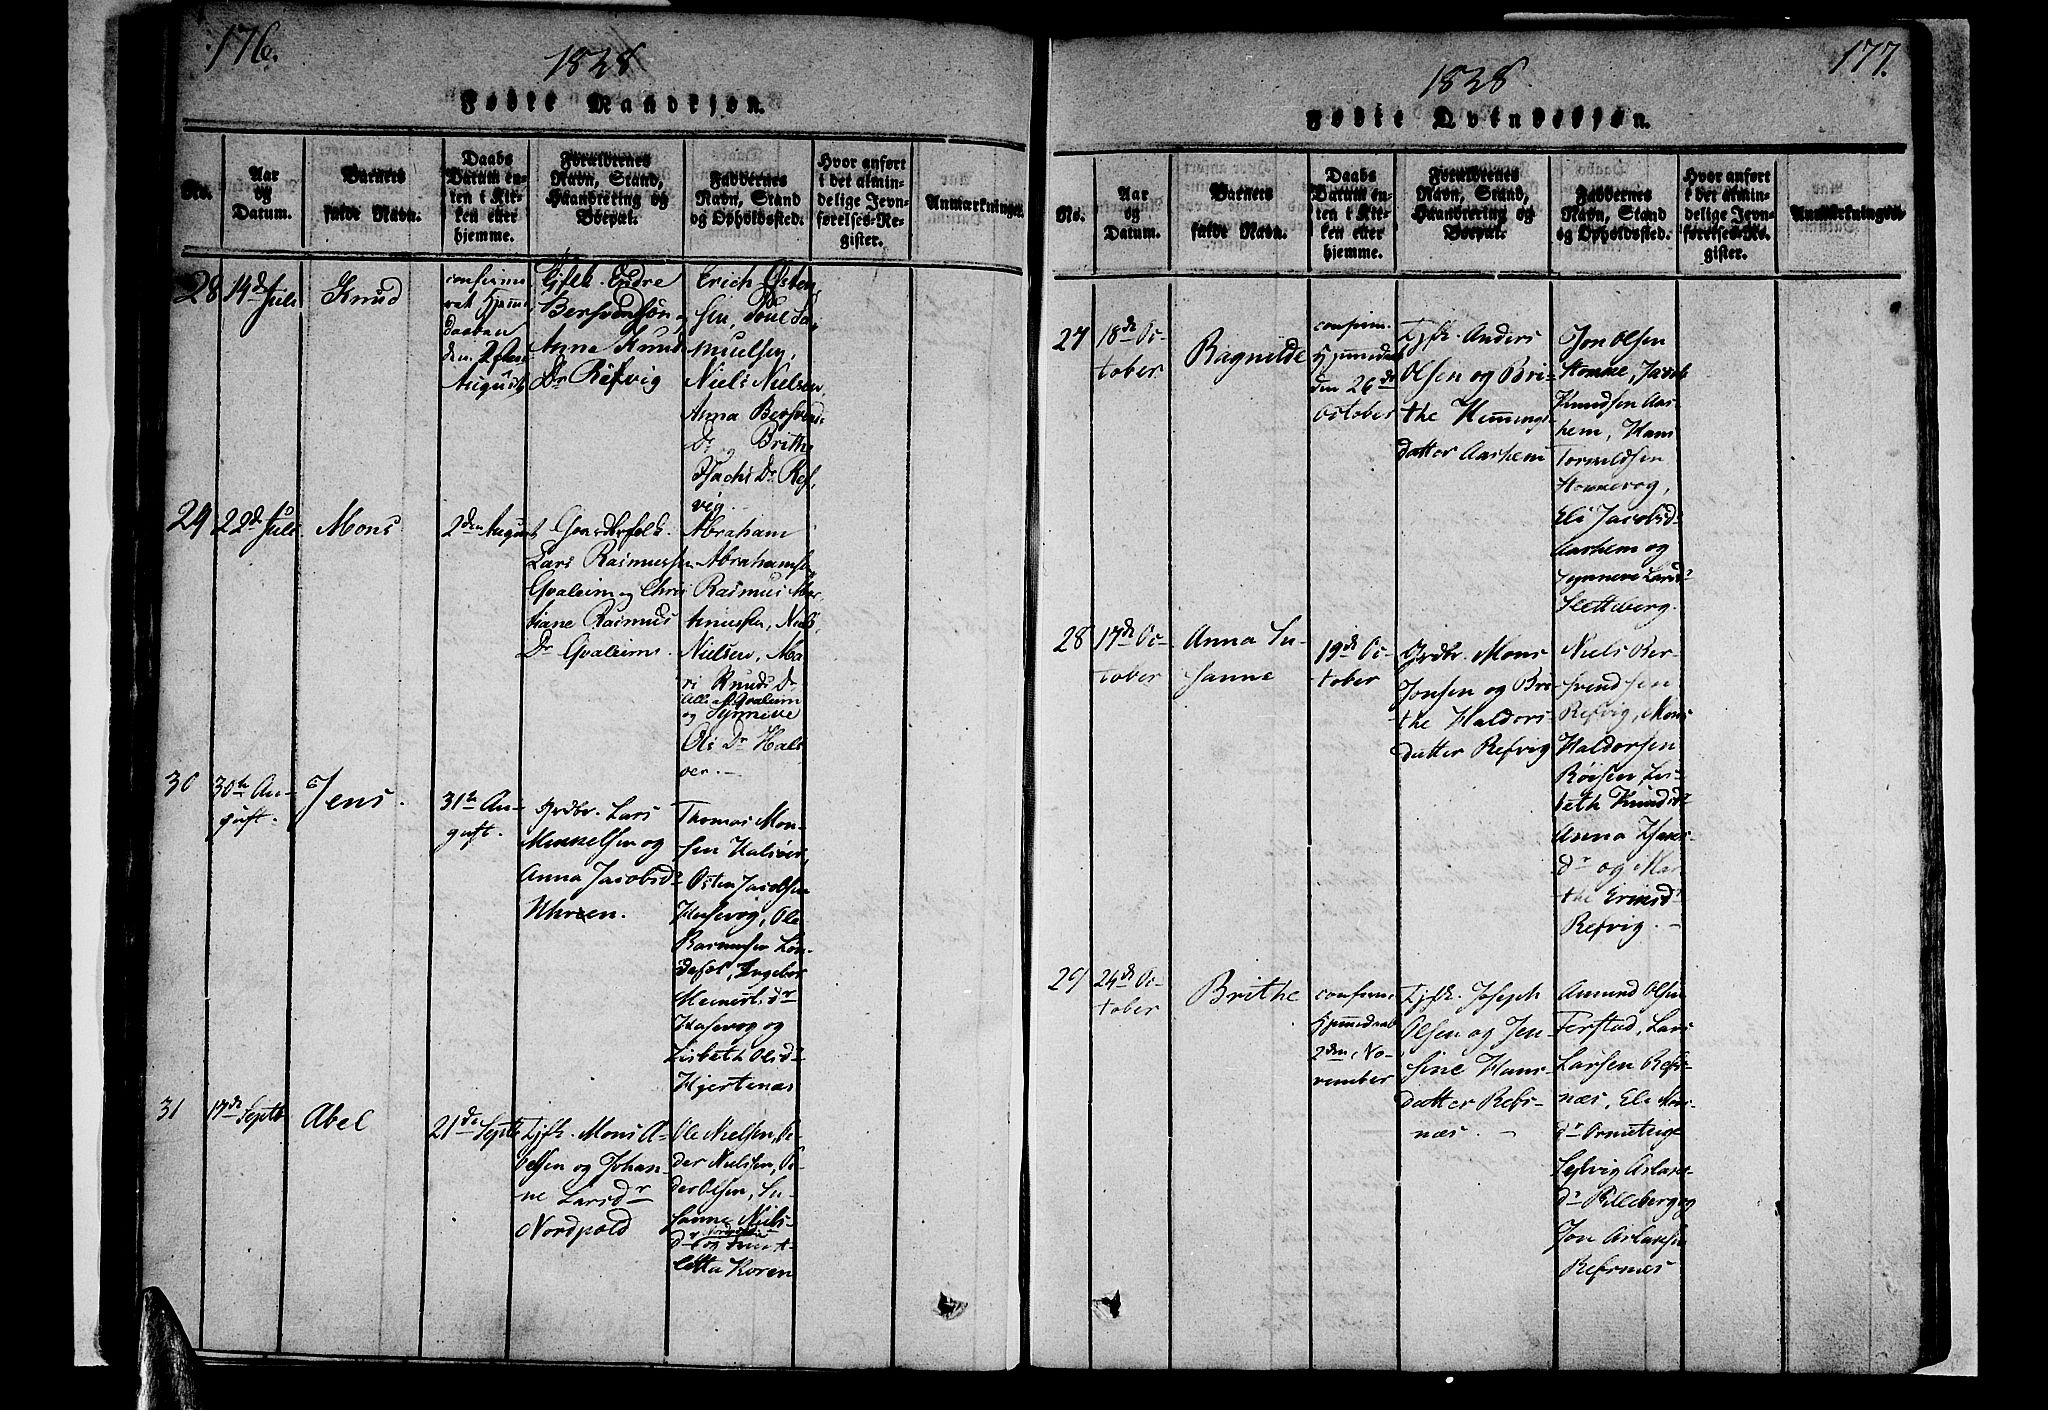 176.
1828
Fødte Mandkjøn.
No.
Aar
og
Datum.
Barnets
fulde Navn.
Daabs
Datum en-
ten i Kir-
ken eller
hjemme.
Forældrenes
Navn, Stand,
Haandtering og
Boepæl.
Faddernes
Navn, Stand
og Opholdssted.
Hvor anført
i det almin-
delige Jevn-
førelses-Re-
gister.
Anmærkninger.
28
14de Juli
Knud
confirme-
ret Hjemme
daaben
den
August
Endre
Bersvendsøn
Anna Knuds
Dr Refvig
Erich Østen
sen, Poul Sa-
muelsen,
Niels Nielsen,
Anna Bersvends
Dr Brithe
Isachs Dr Ref,
vig.
29
22de Juli
Mons
2den August
Gaardfolk.
Lars Rasmussen
Gvaleim og Chris
tiane Rasmus
Dr Gvaleim.
Abraham
Abrahamsen,
Rasmus Mor,
tinussen, Niels,
Nielsen, Ma
ri Knuds Dr
Alle af Gvaleim
og Synneve
Ols Dr Hals
øer. —
30
30te Au-
gust.
Jens.
31te Au-
gust.
Grdbr. Lars
Monnelsen og
Anna Jacobsdr
Uhren.
Thomas Mon-
sen Halsør,
Østen Jacobsen
Husevog, Ole
Rasmusen Løn-
defæl, Ingebor
dr
Husevog og
Lisbeth Olsdr
Hjertenæs
31
17de Septbr
Abel
21de Septbr
Tjfk. Mons A-
belsen og Johan-
ne Larsdr
Nordpold
Ole Nielsen, Pe-
der Nielsen, Pe-
der Olsen, Su-
sanne Niels-
dr Nordpold
og
letta Koren
177.
1828
Fødte Qvindekjøn.
No.
Aar
og
Datum.
Barnets
fulde Navn.
Daabs
Datum en-
ten i Kir-
ken eller
hjemme.
Forældrenes
Navn, Stand,
Haandtering og
Boepæl.
Faddernes
Navn, Stand
og Opholdssted.
Hvor anført
i det almin-
delige Jevn-
førelses-Re-
gister.
Anmærkninger.
27
18de Oc-
tober
Ragnilde
confirm.
Hjemmedaab
den 26de
October
Tjfk. Anders
Olsen og Bri-
the Hemings-
datter Aarhem
Jon Olsen
Honne, Jacob
Knudsen Aar-
hem, Hans
Tormodsen
Honnevog,
Eli Jacobsdr
Aarhem og
Synneve Larsdr
Sletteberg.
28
17de Oc-
tober
Anna Su-
sanne
19de Oc-
tober
Grdbr. Mons
Jonsen og Bri-
the Haldors-
datter Refvig
Niels Ber-
svendsen
Refvig, Mons
Haldorsen
Røisen Lis-
beth Knudsdr
Anna Hans-
dr og Mar-
the Erinsdr
Refvig. —
29
24de Oc-
tober
Brithe
confirm.
Hjemmedaab
2den No-
vember
Tjfk. Joseph
Olsen og Jen-
sine Hans-
datter Refs-
næs. —
Amund Olsen
Ferstad, Lars
Larsen Refs-
næs, Eli
dr Ormuteige
Sylvig Aslaks-
dr Pilleberg og
Jon Aslaksen
Refsnæs